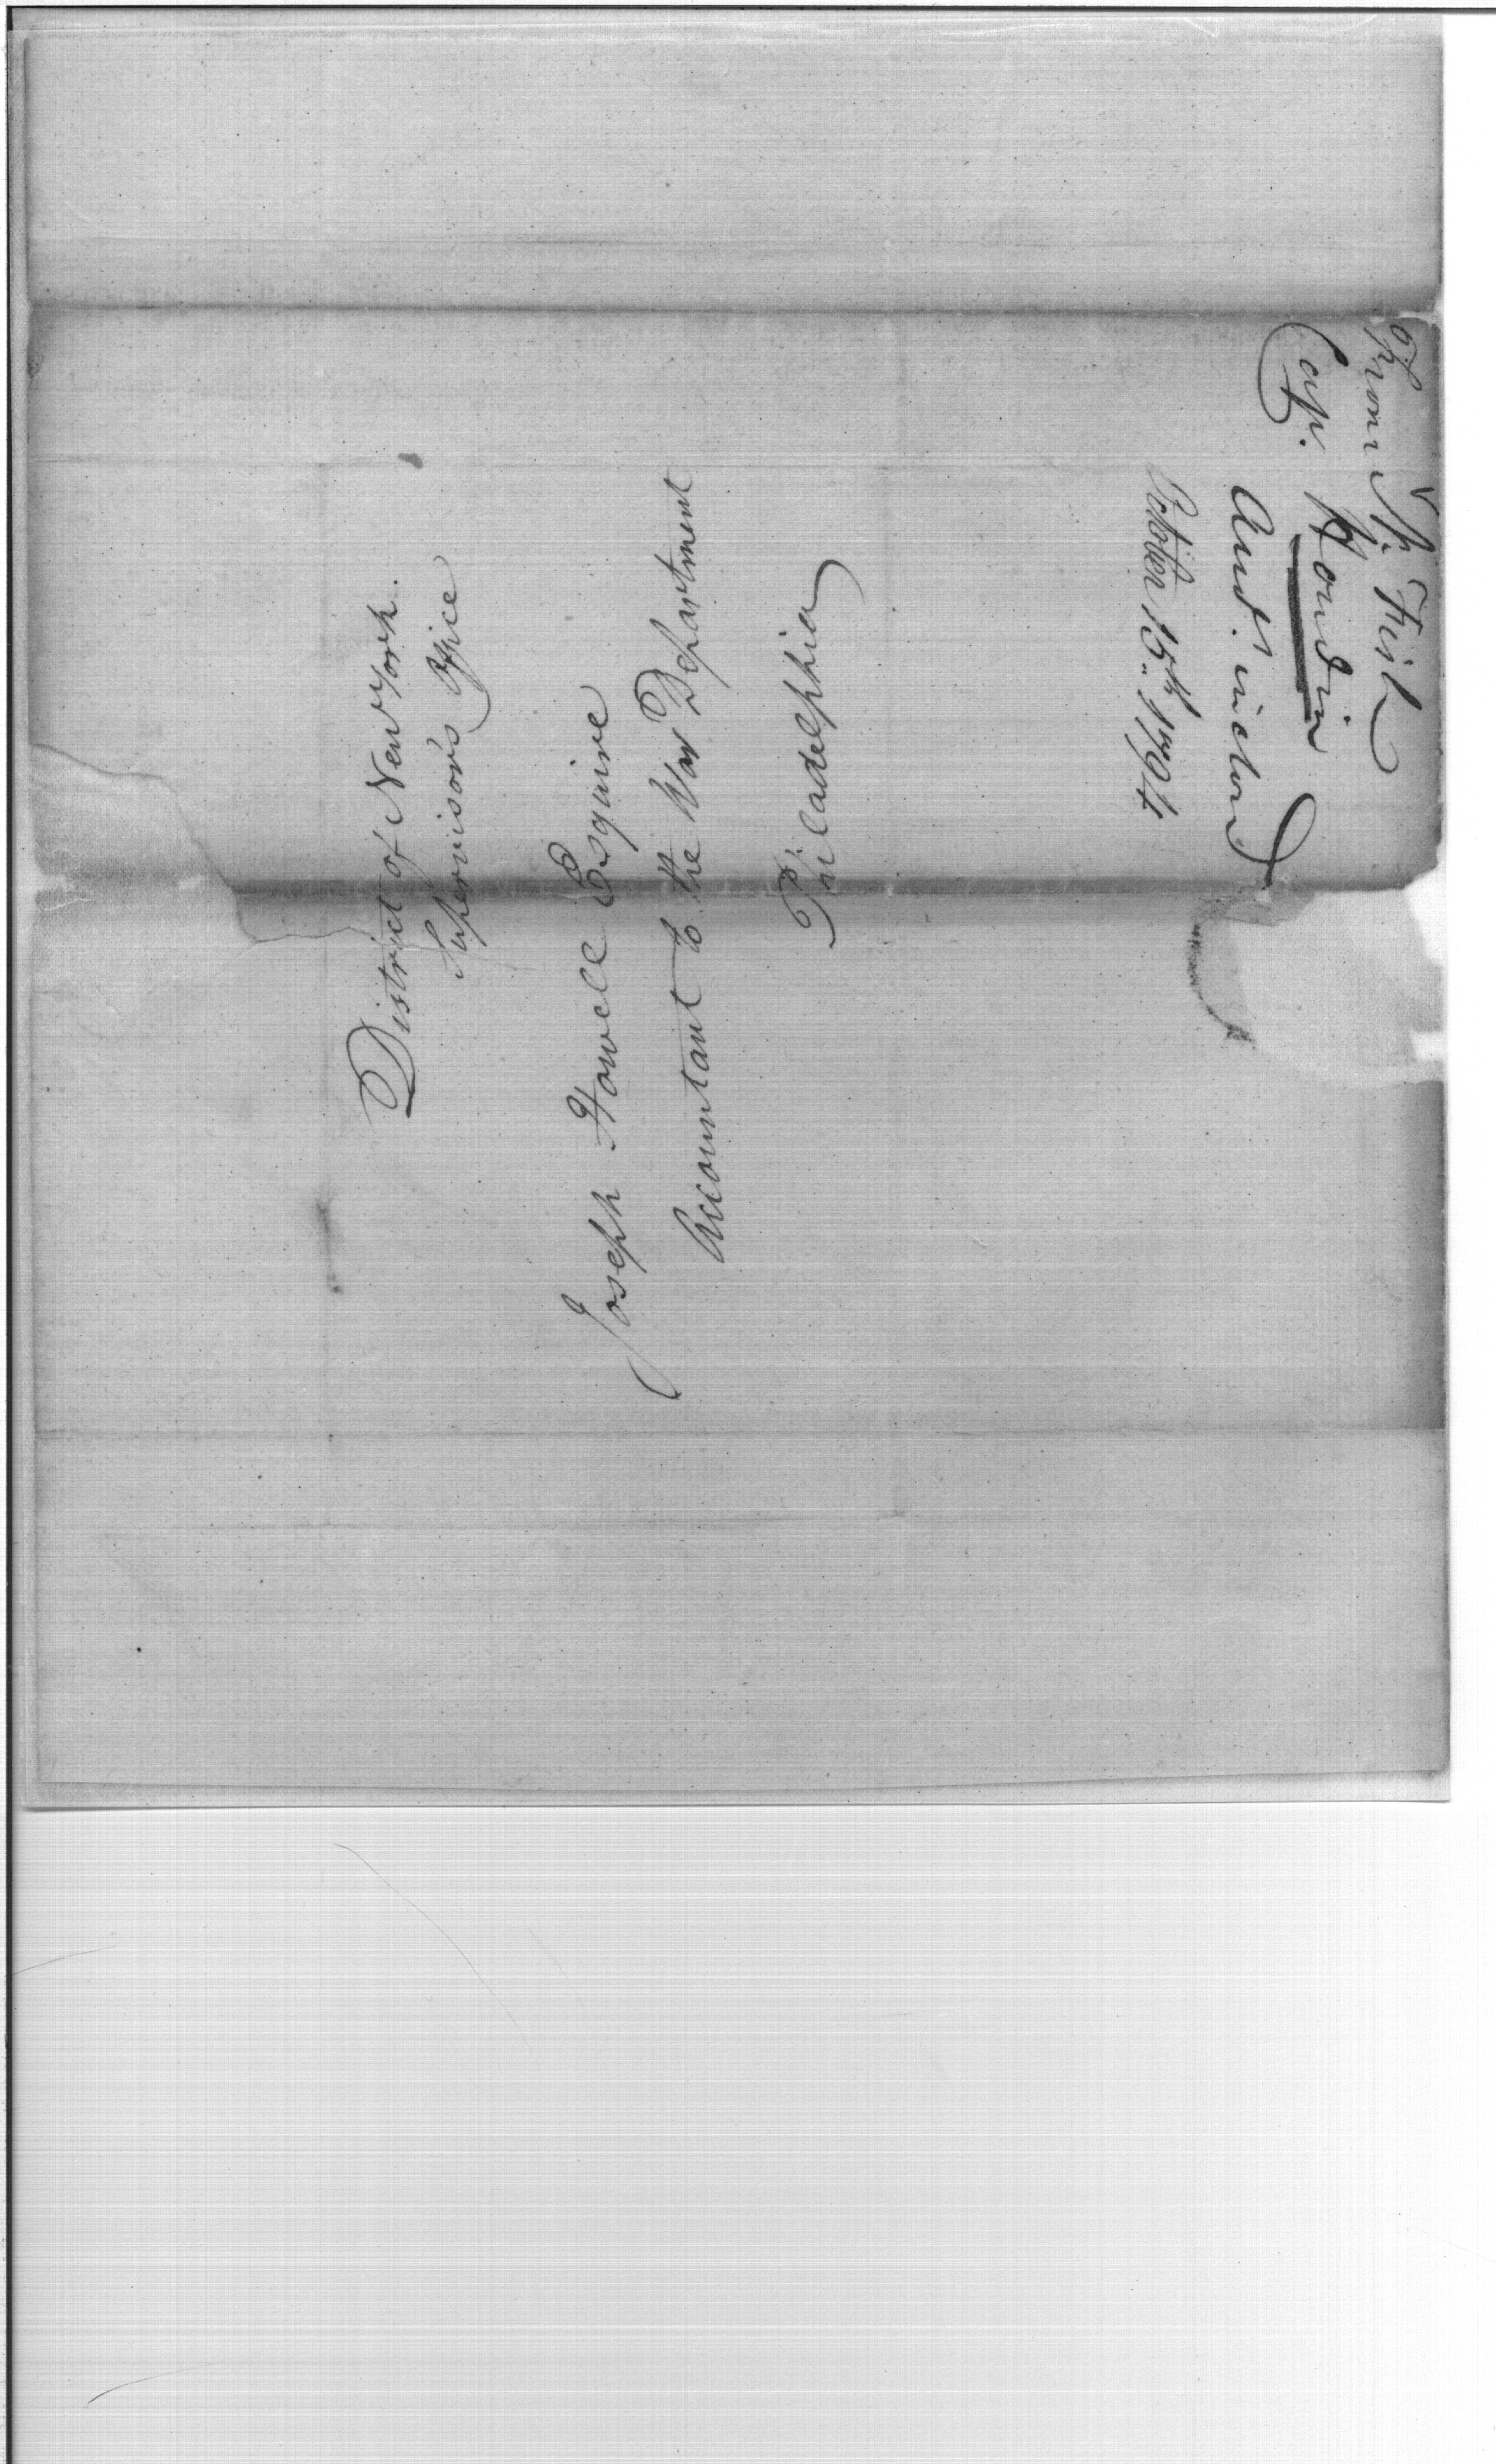 District of New York.
Supervisor's Office
Joseph Howell Esquire
Accountant to the War Department
Philadelphia
From N. Fish
Cap. Houdin
October 15th. 1794